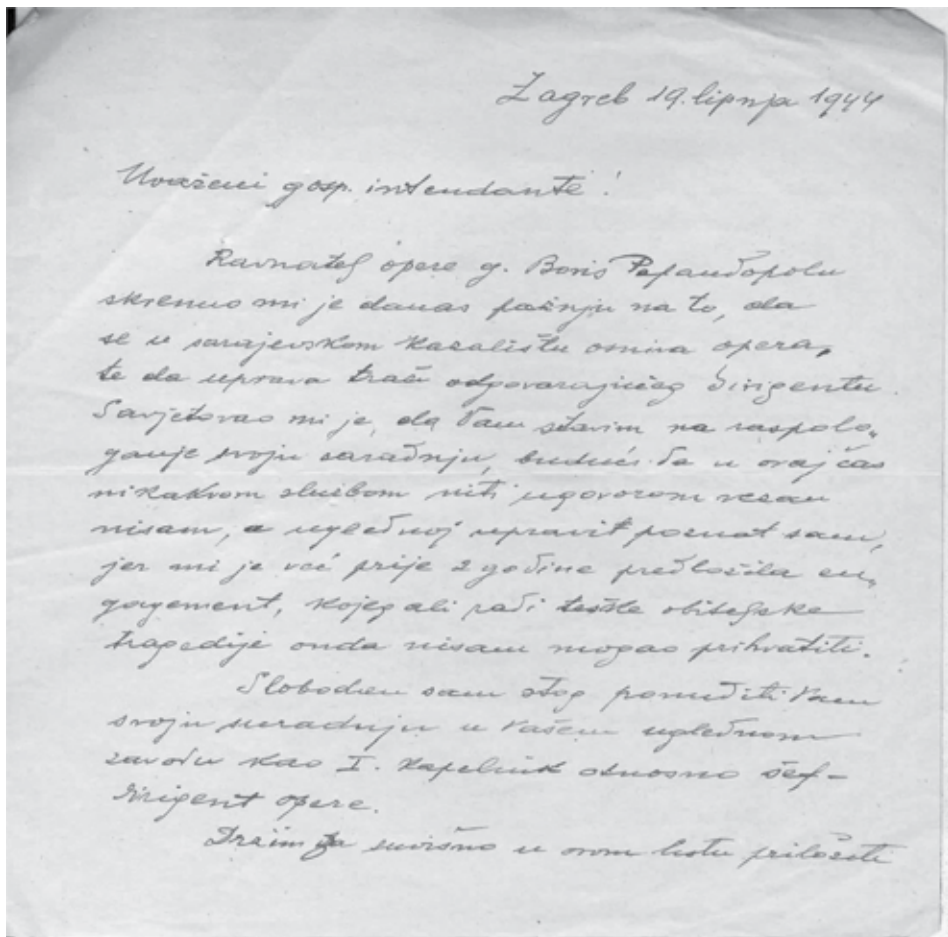 Zagreb 19. lipnja 1944
Uvaženi gosp. intendante!
Ravnatelj opere g. Boris Papandopolu
skrenuo mi je danas pažnju na to, da
se u sarajevskom kazalištu osniva opera,
te da uprava traži odgovarajućeg dirigenta.
Savjetovao mi je, da Vam stavim na raspolo„
ganje svoju saradnju, budući da u ovaj čas
nikakvom službom niti ugovorom vezan
nisam, a uglednoj upravi poznat sam,
jer mi je već prije 2 godine predložila en„
gagement, kojeg ali radi teške obiteljske
tragedije onda nisam mogao prihvatiti.
Slobodan sam stog ponuditi Vam
svoju suradnju u Vašem uglednom
zavodu kao I. kapelnik odnosno šef-
dirigent opere.
Držim za suvišno u ovom listu priložiti